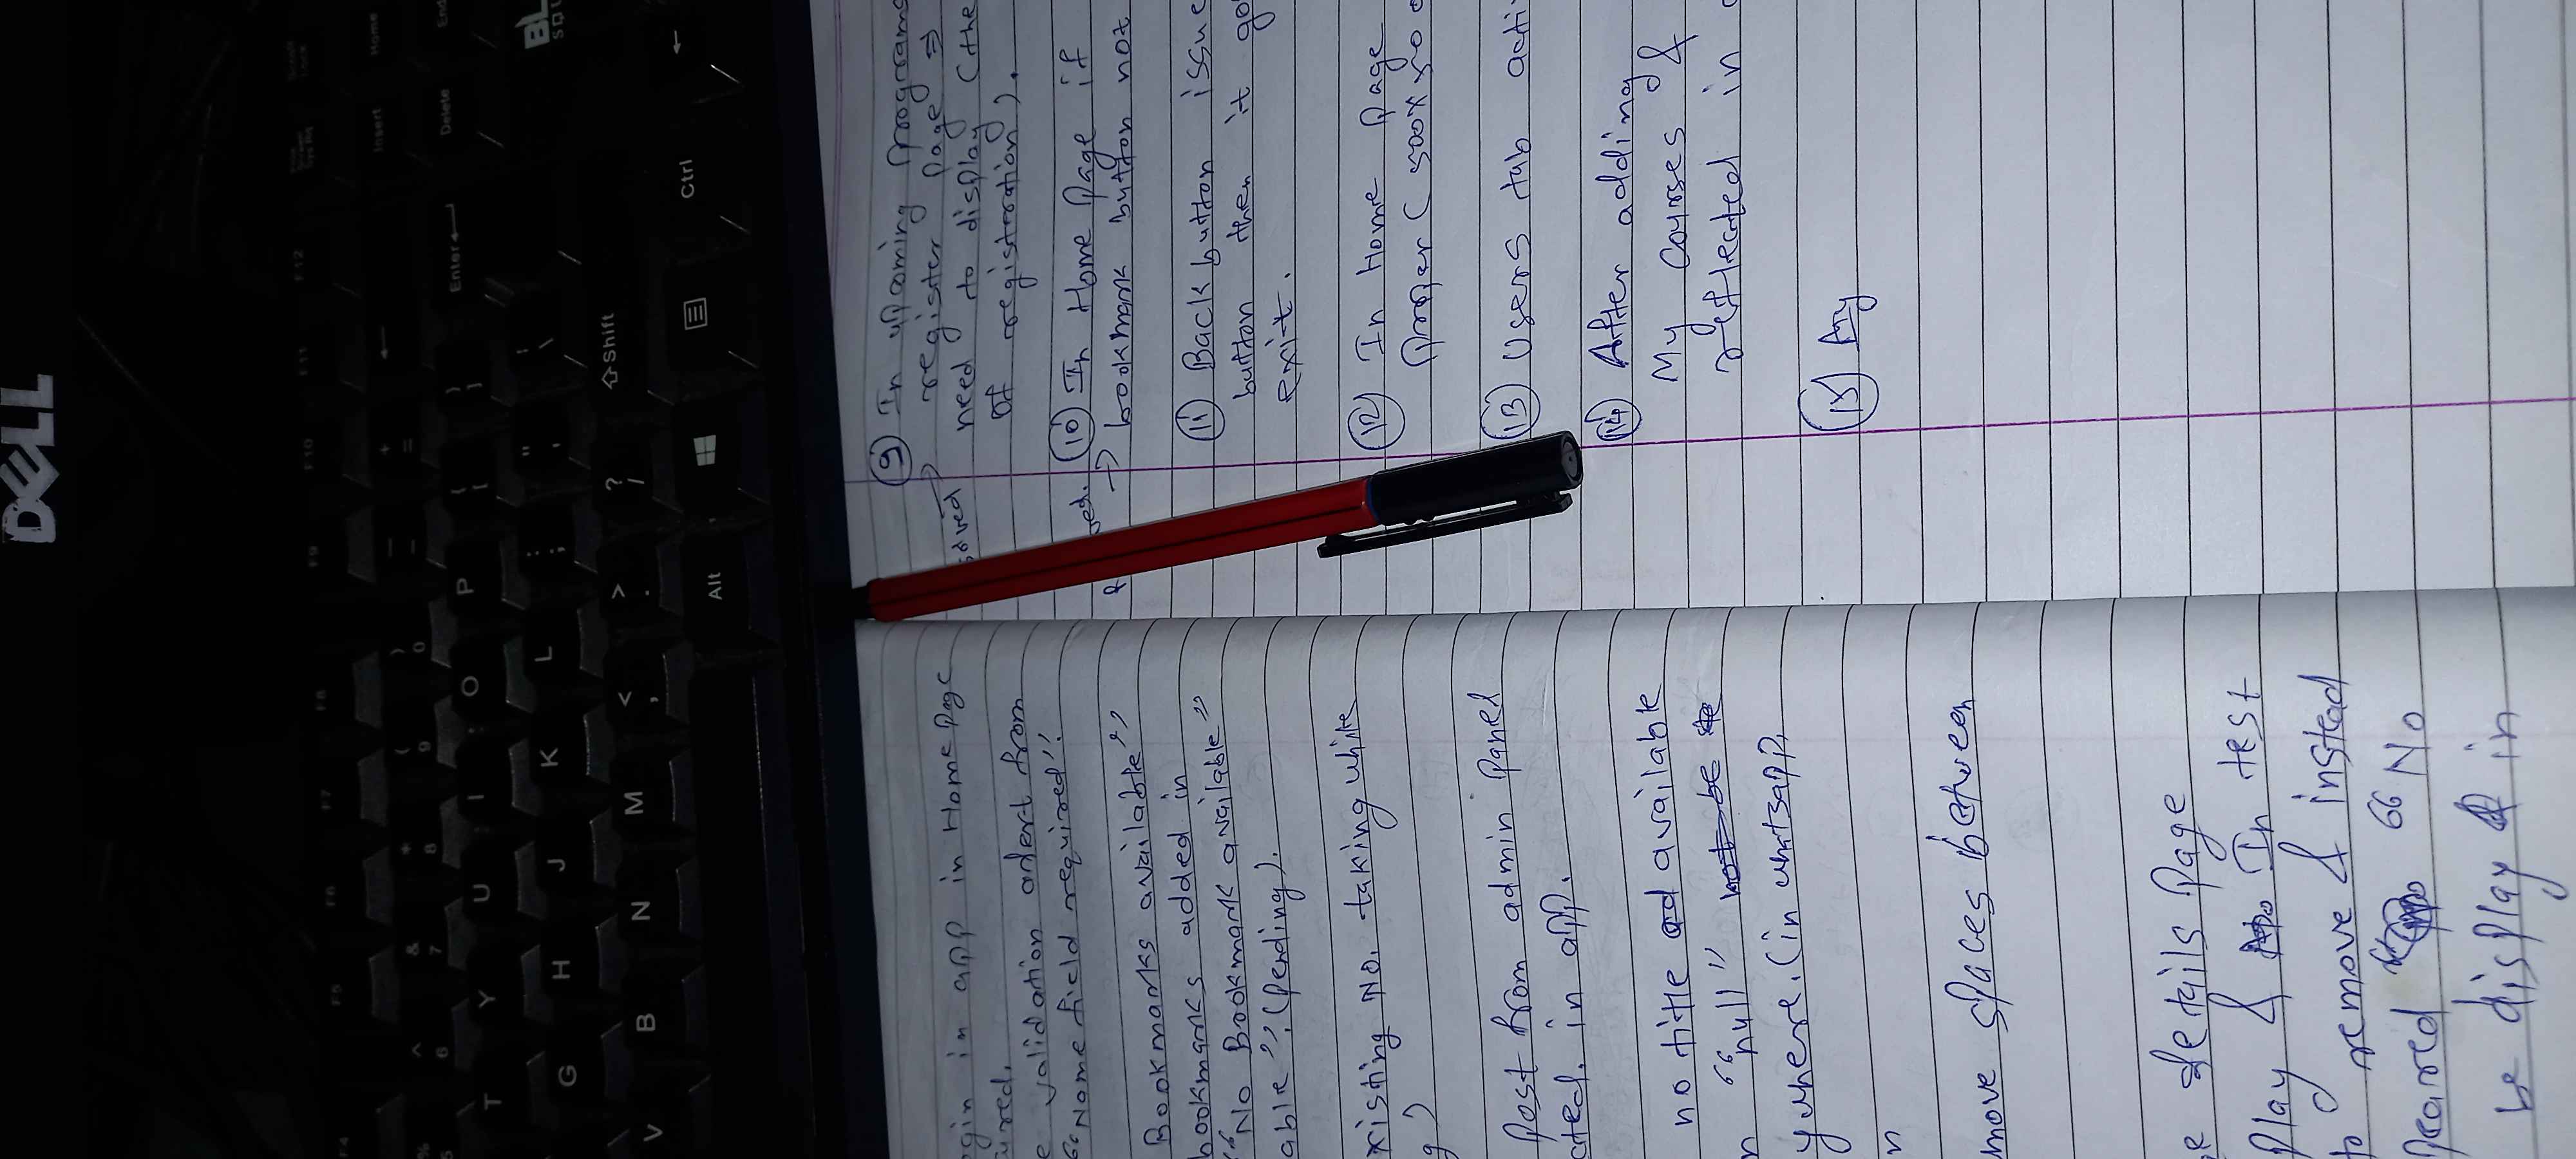 DELL
F4 F5 F6 F7 F8 F9 F10 F11 F12
% 5 ^ 6 & 7 * 8 ( 9 ) 0 _ - + = ← Insert Home
T Y U I O P { [ } ] Enter Delete End
G H J K L : ; " ' | \ BL
SQU
V B N M < , > . ? / Shift
Alt Ctrl ←
gin in app in Home Page
ured.
e validation alert from
"Name field required".
Bookmarks available"
bookmarks added in
"No Bookmark available"
able". (Pending).
xisting No. taking white
g)
Post from admin Panel
cted. in app.
no title available
n "null" not be
ywhere. (in whatsapp,
n
move spaces between
e details Page
Play & In test
to remove & instead
peared "No
be display & in
⑨ In upcoming programs
solved → register page ⇒
need to display (the
of registeration).
ved. ⑩ In Home Page if
R → bookmark button not
⑪ Back button issue
button then it go
exit.
⑫ In Home Page
Proper (500x50
⑬ Users tab acti
⑭ After adding
My Courses &
reflected in
⑮